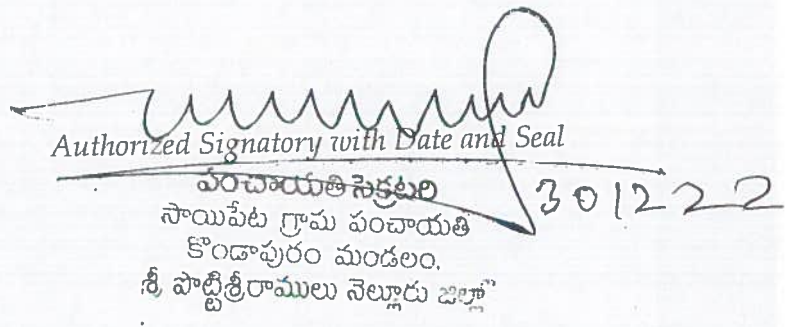 Authorized Signatory with Date and Seal
పంచాయతి సెక్రటరి
301222
సాయిపేట గ్రామ పంచాయతి
కొండాపురం మండలం,
శ్రీ పొట్టిశ్రీరాములు నెల్లూరు జిల్లా